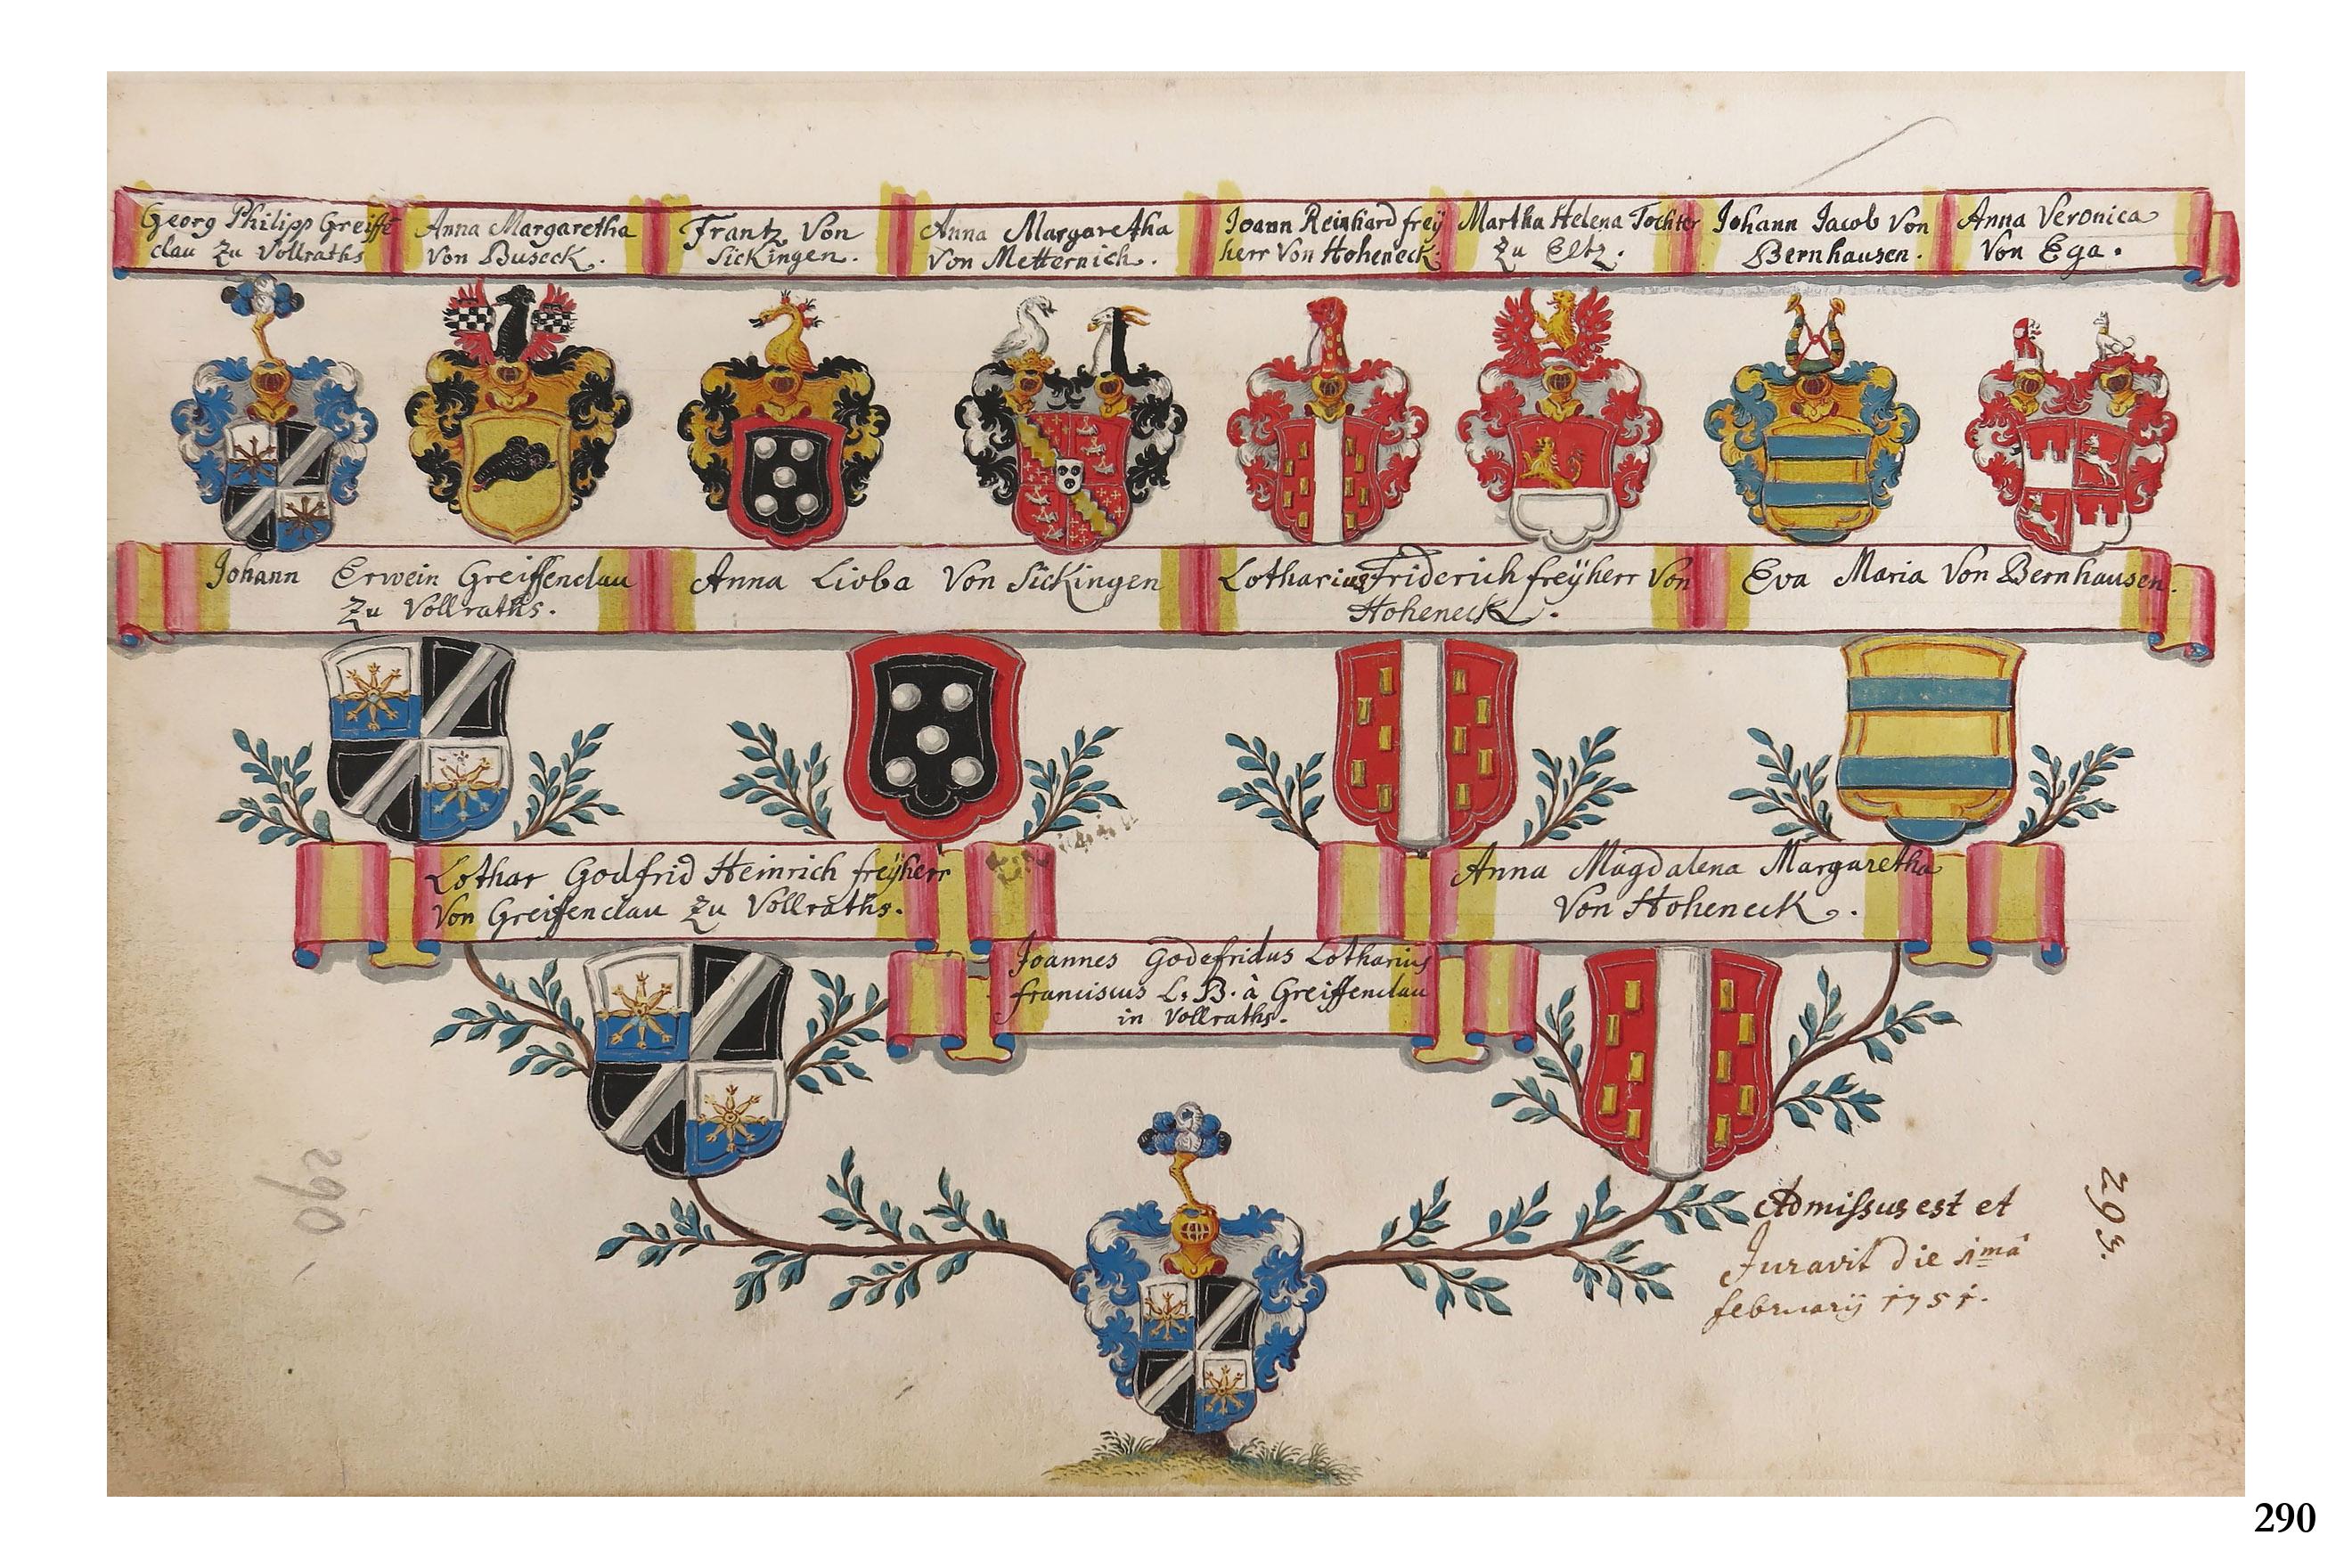 Georg Philipp Greiffē
clau zu Vollraths
Anna Margaretha
von Buseck.
Frantz von
Sickingen.
Anna Margaretha
von Metternich.
Joann Reinhard frey
herr von Hoheneck.
Martha Helena Tochter
zu Eltz.
Johann Jacob von
Bernhausen.
Anna Veronica
von Ega.
Johann Erwein Greiffenclau
zu Vollraths.
Anna Lioba von Sickingen
Lotharius Friderich freÿherr von
Hoheneck.
Eva Maria von Bernhausen.
Lothar Godfrid Heinrich freÿherr
von Greiffenclau zu Vollraths.
Anna Magdalena Margaretha
von Hoheneck.
Joannes Godefridus Lotharius
franciscus L. B. à Greiffenclau
in Vollraths.
Admissus est et
Juravit die 1mâ
februarij 1751.
293.
290
290